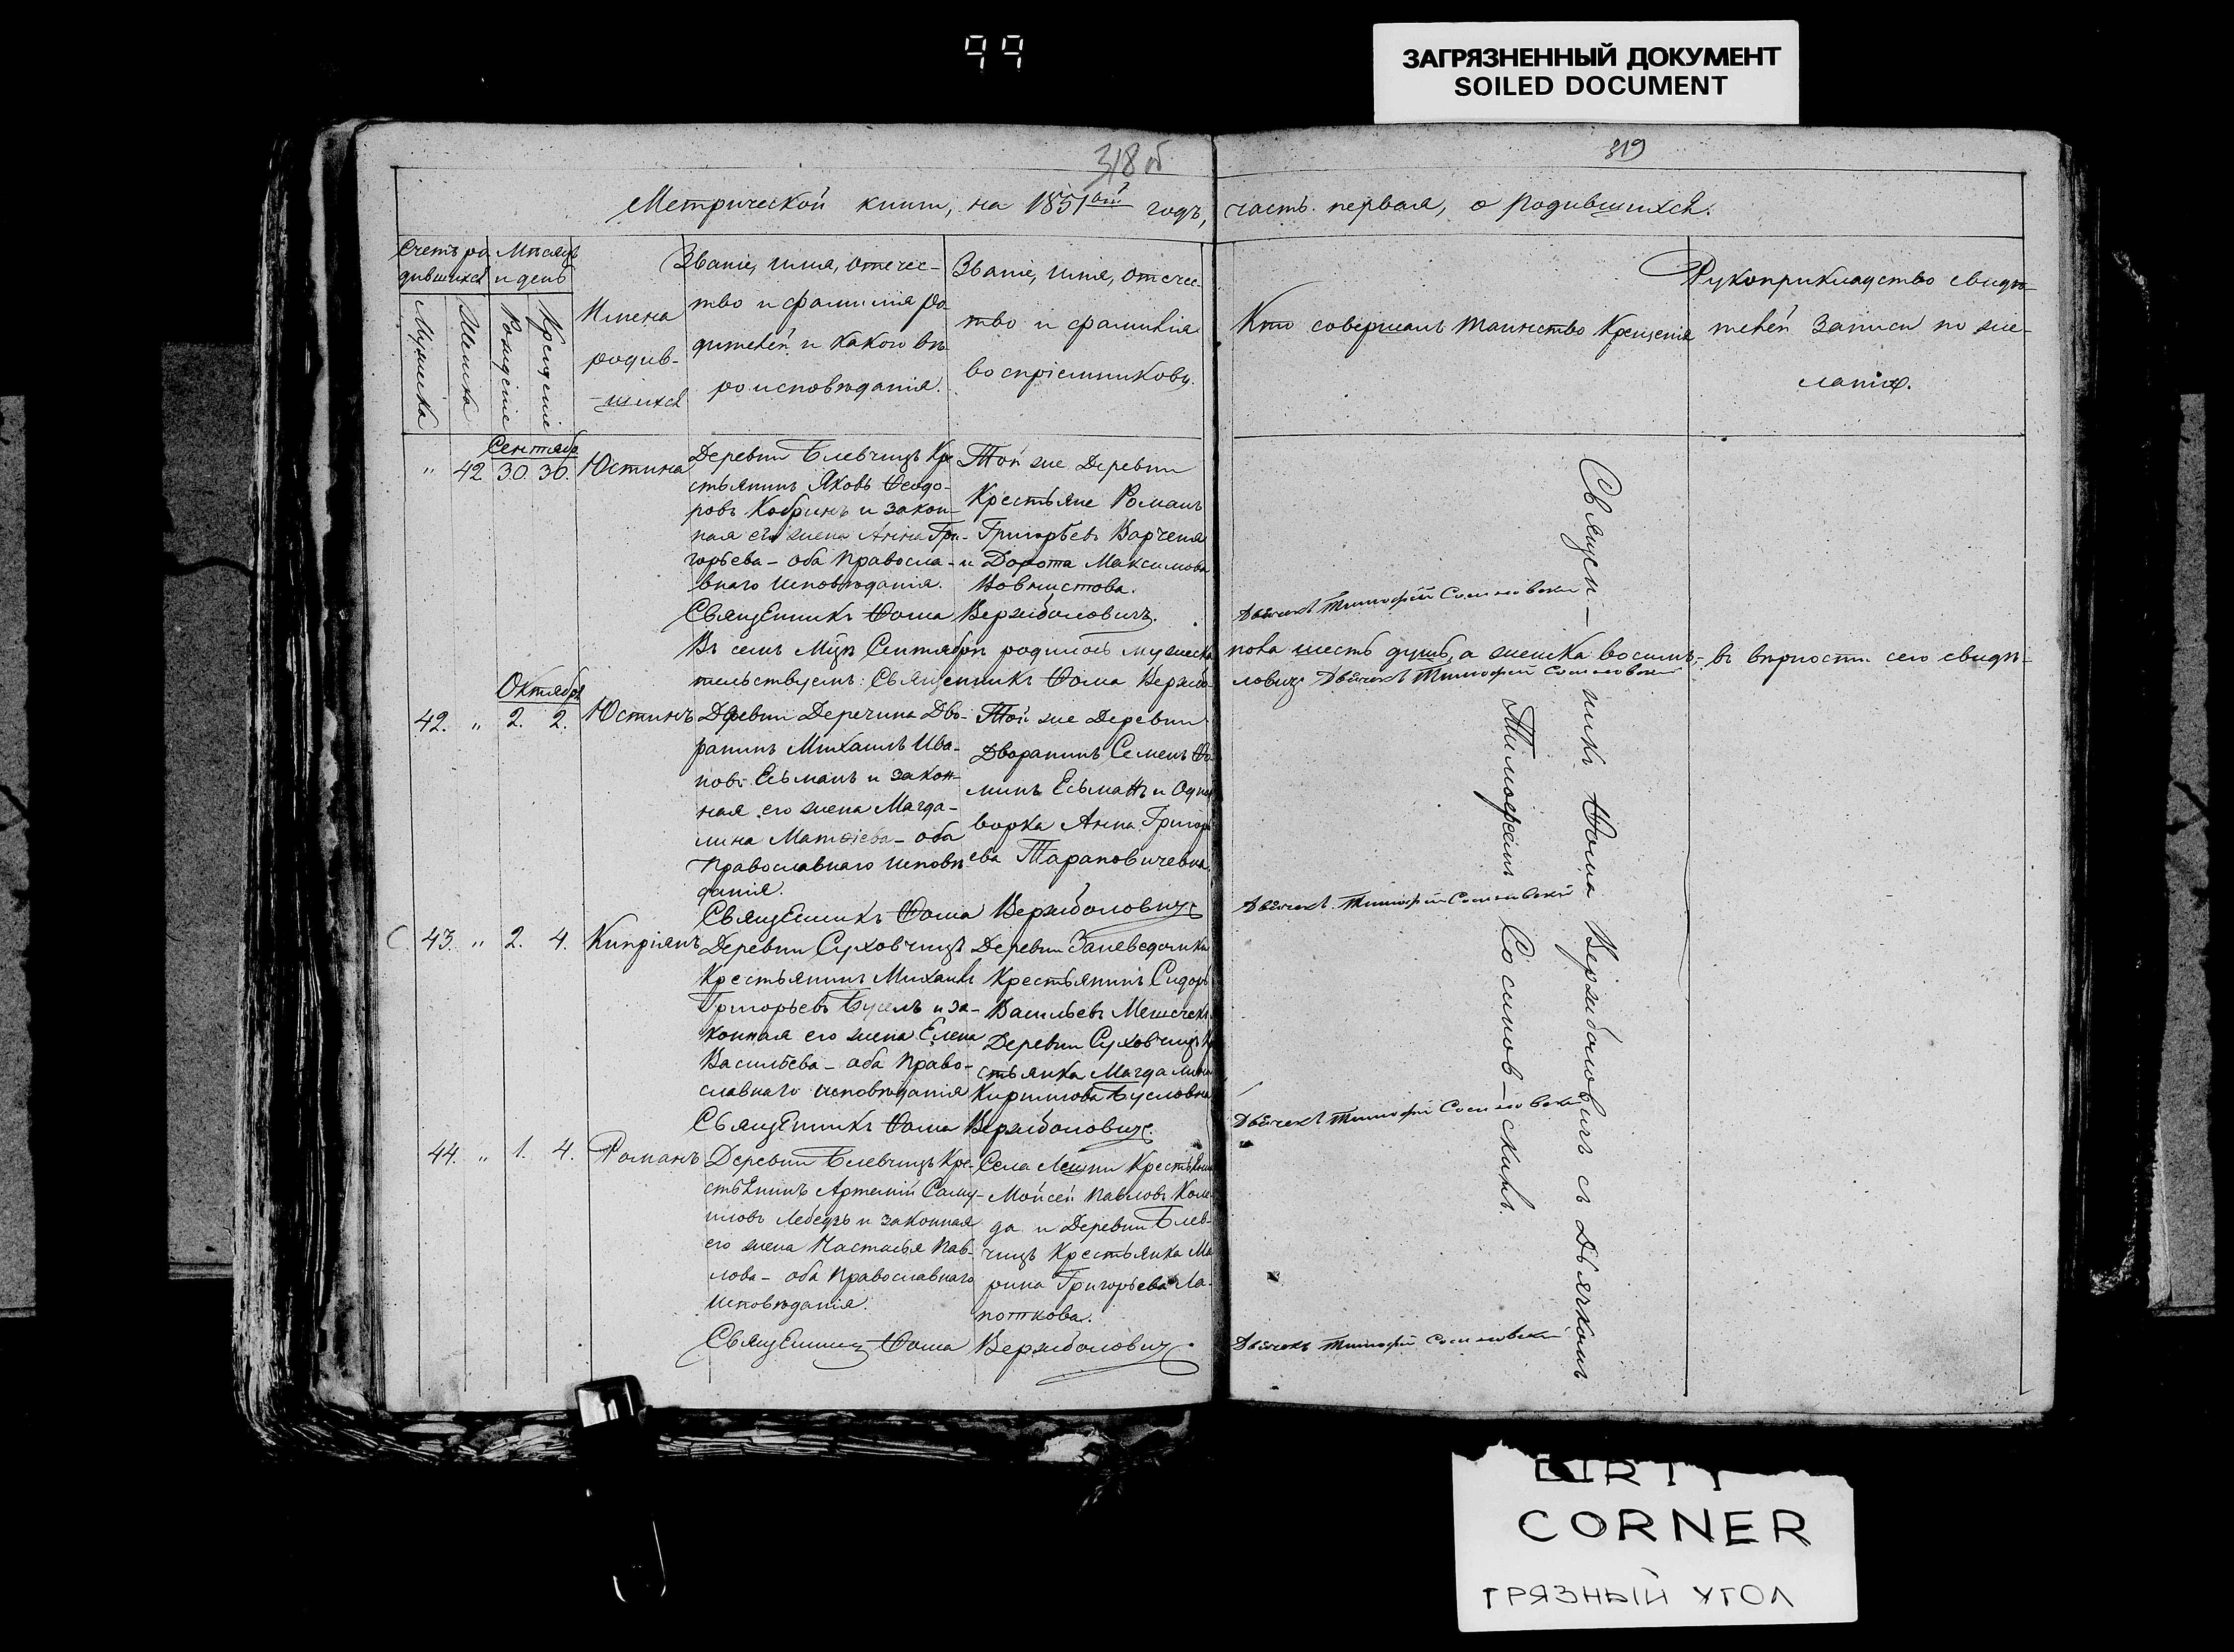 99
ЗАГРЯЗНЕННЫЙ ДОКУМЕНТ
SOILED DOCUMENT
318 об
319
Метрической книги, на 1851ый годъ, часть первая, о родившихся.
Счетъ ро-
дившихся
Мужеска
Женска
Мѣсяцъ
и день
Рожденіе
Крещеніе
Имена
родив-
шихся
Званіе, имя, отечес-
тво и фамилія ро
дителей и какого вѣ
роисповѣданія.
Званіе, имя, отечес-
тво и фамилія
воспріемниковъ.
Кто совершалъ таинство Крещенія
Рукоприкладство свидѣ-
телей записи по же-
ланію.
Сентябр.
" 42 30. 30. Юстина
Деревни Блевчицъ Кре
стьянинъ Яковъ Ѳеодо-
ровъ Кобринъ и закон-
ная его жена Анна Гри-
горьева - оба Правосла-
внаго Исповѣданія.
Той же Деревни
Крестьяне Романъ
Григорьевъ Варченя
и Дорота Максимова
Вовчистова.
Священникъ Ѳома Вержболовичъ.
Дьячекъ Тимофей Сосиновскій
Въ семъ Мцѣ Сентябрѣ родилось мужеска пола шесть душъ, а женска восимъ, въ вѣрности сего свидѣ-
тельствуемъ: Священникъ Ѳома Вержбо-
ловичъ Дьячекъ Тимофей Сосиновскій
Октябр
42. " 2. 2. Юстинъ
Деревни Деречина Дво-
рянинъ Михаилъ Ива-
новъ Есьманъ и закон-
ная его жена Магда-
лина Матѳіева - оба
Православнаго Исповѣ-
данія.
Той же Деревни
Дворянинъ Семенъ Ѳо
минъ Есьманъ и Одно
ворка Анна Григорь
ева Тарановичевна
Священникъ Ѳома Вержболовичъ
Дьячекъ Тимофей Сосиновскій
С. 43. " 2. 4. Кипріянъ
Деревни Суховчицъ
Крестьянинъ Михаилъ
Григорьевъ Буселъ и за-
конная его жена Елена
Васильева - оба Право-
славнаго исповѣданія
Крестьянинъ Сидоръ
Васильевъ
Деревни Суховчицъ К
стьянка Магдалина
Кирилова Бусловна
Священникъ Ѳома Вержболовичъ
Дьячекъ Тимофей Сосиновскій
44. " 1. 4. Романъ
Деревни Блевчицъ Кре-
стьянинъ Артемій Саму-
иловъ Лебедзь и законная
его жена Настасья Пав-
лова - оба Православнаго
Исповѣданія.
Села Лешни Крестьянинъ
Мойсей Павловъ Коля
да и Деревни Блев-
чицъ Крестьянка Ма
рина Григорьева Ла-
поткова.
Священникъ Ѳома Вержболовичъ
Дьячекъ Тимофей Сосиновскій
Священ-никъ Ѳома Вержболовичъ съ Дьячкомъ
Тимофеемъ Сосинов-скимъ.
DIRTY
CORNER
ГРЯЗНЫЙ УГОЛ